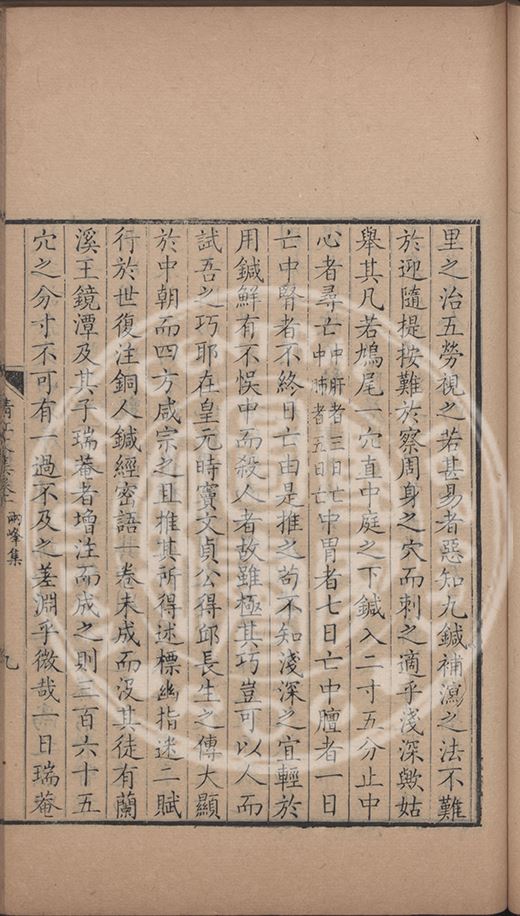 里之治五勞視之若甚易者惡知九鍼補瀉之法不難
於迎隨提按難於察周身之穴而刺之適乎淺深歟姑
舉其凡若鳩尾一穴直中庭之下鍼入二寸五分止中
心者尋亡中肝者三日亡中肺者五日亡中胃者七日亡中膻者一日
亡中腎者不終日亡由是推之苟不知淺深之宜輕於
用鍼鮮有不悞中而殺人者故雖極其巧豈可以人而
試吾之巧耶在皇元時竇文貞公得邱長生之傳大顯
於中朝而四方咸宗之且推其所得述標幽指迷二賦
行於世復注銅人鍼經密語一卷未成而沒其徒有蘭
溪王鏡潭及其子瑞菴者增注而成之則三百六十五
穴之分寸不可有一過不及之差淵乎微哉一日瑞菴
清江 集卷 兩峰集
九